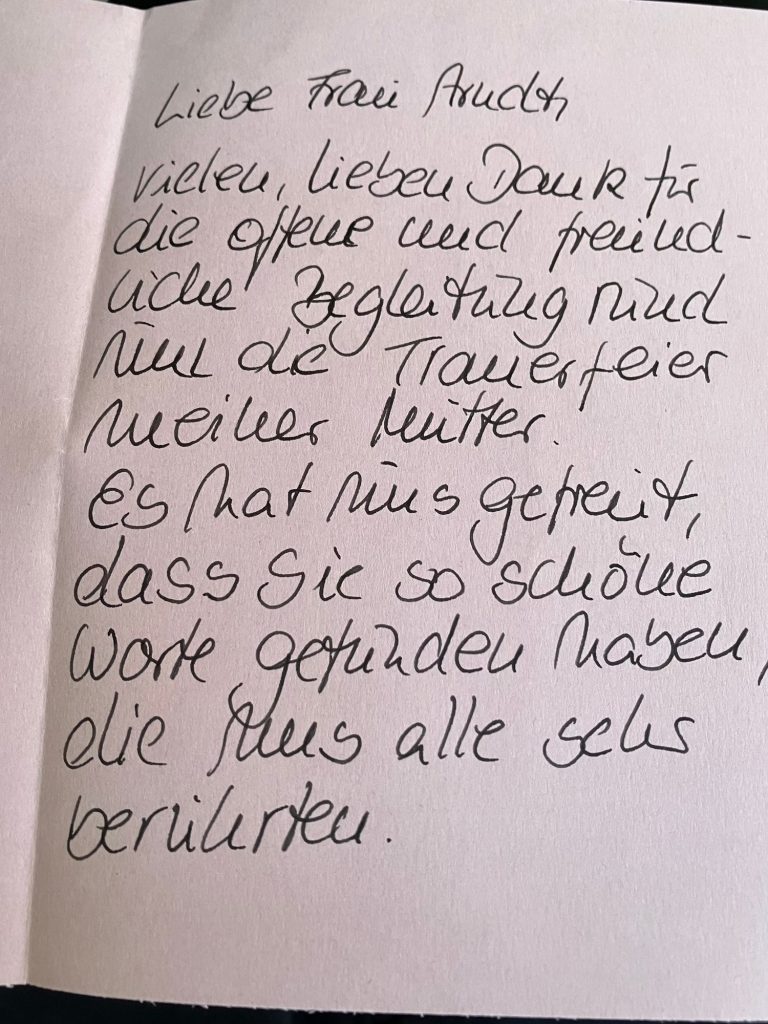 Liebe Frau Arndt
vielen, lieben Dank für
die offene und freund-
liche Begleitung rund
um die Trauerfeier
meiner Mutter.
Es hat uns gefreut,
dass Sie so schöne
Worte gefunden haben,
die uns alle sehr
berührten.